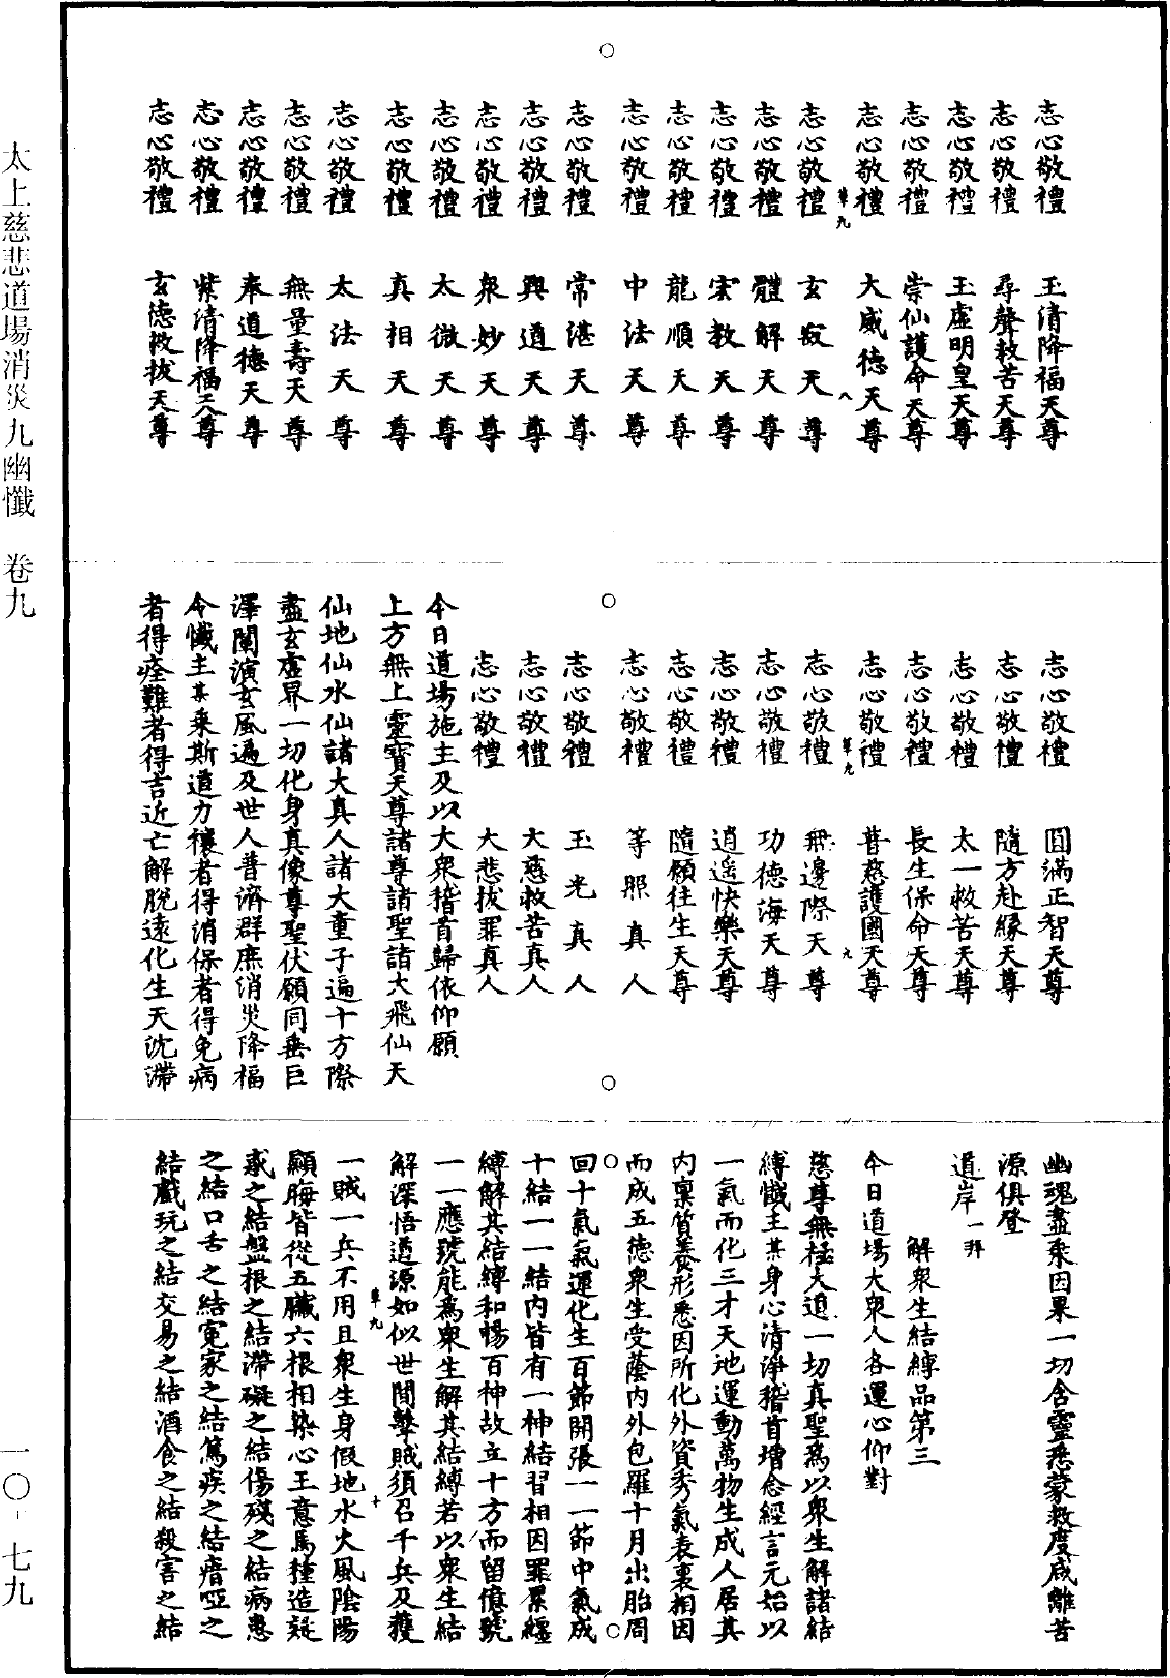 志心敬禮　玉清降福天尊
志心敬禮　尋聲救苦天尊
志心敬禮　玉虛明皇天尊
志心敬禮　崇仙護命天尊
志心敬禮　大威德天尊
志心敬禮　玄寂天尊
志心敬禮　體解天尊
志心敬禮　宏教天尊
志心敬禮　龍順天尊
志心敬禮　中法天尊
志心敬禮　常湛天尊
志心敬禮　興道天尊
志心敬禮　衆妙天尊
志心敬禮　太微天尊
志心敬禮　真相天尊
志心敬禮　太法天尊
志心敬禮　無量壽天尊
志心敬禮　奉道德天尊
志心敬禮　紫清降福天尊
志心敬禮　玄德救拔天尊
志心敬禮　圓滿正智天尊
志心敬禮　隨方赴緣天尊
志心敬禮　太一救苦天尊
志心敬禮　長生保命天尊
志心敬禮　普慈護國天尊
志心敬禮　無邊際天尊
志心敬禮　功德海天尊
志心敬禮　逍遥快樂天尊
志心敬禮　隨願往生天尊
志心敬禮　等照真人
志心敬禮　玉光真人
志心敬禮　大慈救苦真人
志心敬禮　大悲拔罪真人
今日道場施主及以大衆稽首歸依仰願
上方無上靈寶天尊諸尊諸聖諸大飛仙天
仙地仙水仙諸大真人諸大童子遍十方際
盡玄虛界一切化身真像尊聖伏願同垂巨
澤闡演玄風遍及世人普濟群庶消災降福
今懺主某乘斯道力禳者得消保者得免病
者得痊難者得吉近亡解脫遠化生天沈滯
幽魂盡乘因果一切含靈悉蒙救度咸離苦
源俱登
道岸一拜
解衆生結縛品第三
今日道場大衆人各運心仰對
慈尊無極大道一切真聖爲以衆生解諸結
縛懺主某身心清淨稽首增念經言元始以
一氣而化三才天地運動萬物生成人居其
内稟質養形悉因所化外資秀氣表裏相因
而成五德衆生受蔭内外包羅十月出胎周
回十氣氣運化生百節開張一一節中氣成
十結一一結内皆有一神結習相因罪累纏
縛解其結縛和暢百神故立十方而留億號
一一應號能爲衆生解其結縛若以衆生結
解深悟道源如似世間擊賊須召千兵及獲
一賊一兵不用且衆生身假地水火風陰陽
顯晦皆從五臟六根相染心王意馬種造疑
惑之結盤根之結滯礙之結傷殘之結病患
之結口舌之結冤家之結篤疾之結瘖啞之
結戲玩之結交易之結酒食之結殺害之結
太上慈悲道場消災九幽懺　卷九
一〇－七九